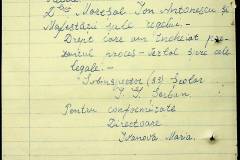 Dlui Mareșal Ion Antonescu și
Majestății sale regelui.
Drept care am încheiat pre-
zentul proces-verbal spre cele
legale.
Subinspector (ss) școlar
I. I. Șerban
Pentru conformitate
Directoare
Ivanova Maria.